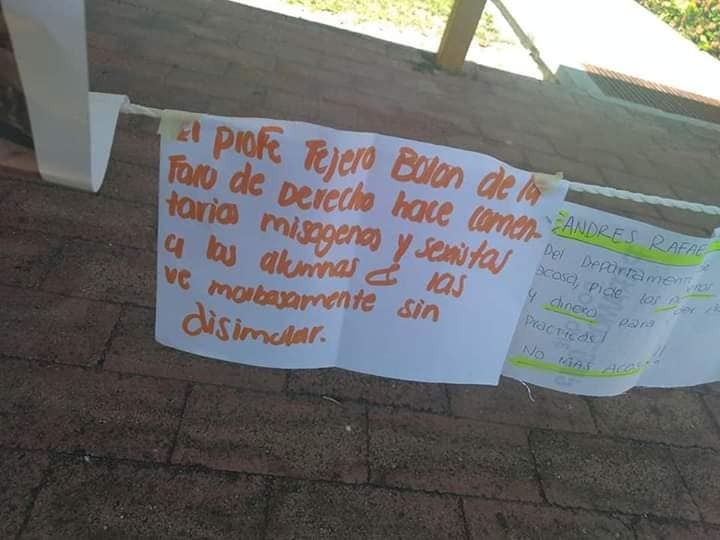 El profe Tejero Bolon de la
Facu de Derecho hace comen-
tarios misogenos y sexistas
a las alumnas & las
ve morbosamente sin
disimular.
ANDRES RAFAE
Del Departamento
acosa, pide las
y dinero para
practicas!
NO MAS ACOS